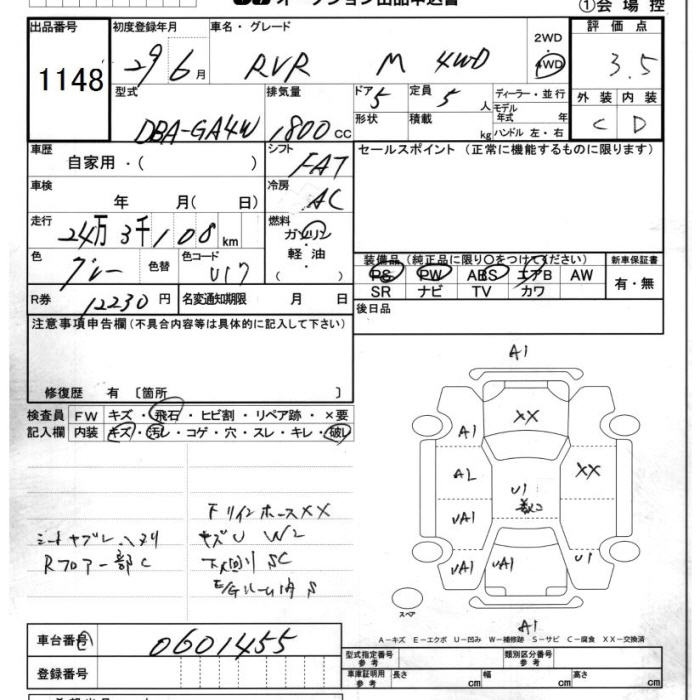 オークション出品申込書
①会場控
出品番号
1148
初度登録年月
29 6 月
車名・グレード
RVR M 4WD
2WD
4WD
評価点
3.5
型式
DBA-GA4W
排気量
1800 CC
ドア 5
定員 5 人
形状
積載 kg
ディーラー・並行
モデル年式 年
ハンドル 左・右
外装 内装
C D
車歴
自家用・( )
シフト
FAT
セールスポイント (正常に機能するものに限ります)
車検
年 月( 日)
冷房
AC
走行
24万3千108 km
燃料
ガソリン
・
軽油
色
グレー
色替
色コード
U17
装備品 (純正品に限り○をつけてください)
PS PW ABS エアB AW
SR ナビ TV カワ
新車保証書
有・無
R券
12230 円
名変通知期限 月 日
後日品
注意事項申告欄 (不具合内容等は具体的に記入して下さい)
修復歴 有 〔箇所 〕
検査員 FW キズ・飛石・ヒビ割・リペア跡・×要
記入欄 内装 キズ・汚レ・コゲ・穴・スレ・キレ・破レ
シートヤブレ
Rフロアー部C
キズU W2
下回りSC
E/Gルーム内S
A1
XX
A1
A2
XX
U1
UA1
UA1
UA1
U1
スペア
A1
A-キズ E-エクボ U-凹み W-補修跡 S-サビ C-腐食 XX-交換済
車台番号
0601455
登録番号
型式指定番号
参考
類別区分番号
参考
車庫証明用
参考
長さ cm
幅 cm
高さ cm